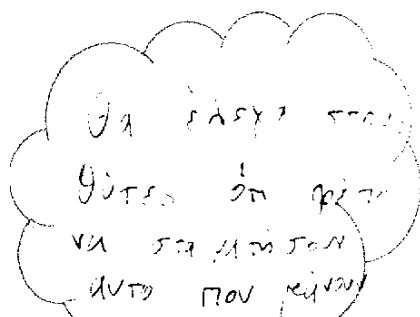 Θα έλεγα στους
θύτες ότι πρέπει
να σταματήσουν
αυτο που κάνουν